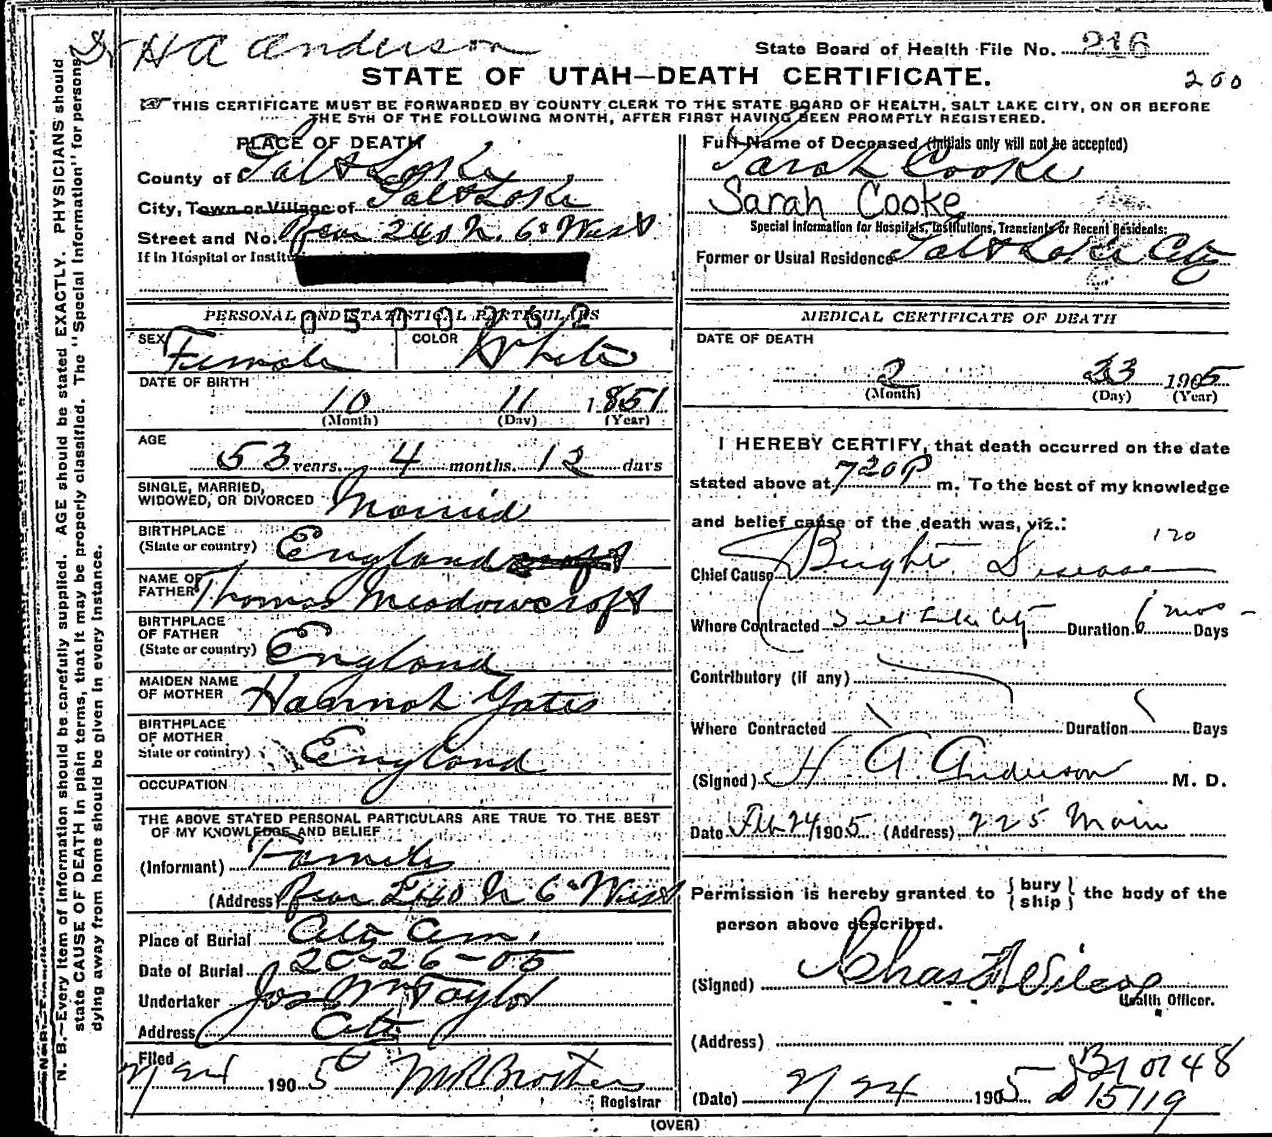 Dr H A Anderson
State Board of Health File No. 216
STATE OF UTAH—DEATH CERTIFICATE.
200
THIS CERTIFICATE MUST BE FORWARDED BY COUNTY CLERK TO THE STATE BOARD OF HEALTH, SALT LAKE CITY, ON OR BEFORE
THE 5TH OF THE FOLLOWING MONTH, AFTER FIRST HAVING BEEN PROMPTLY REGISTERED.
N. B.—Every item of information should be carefully supplied. AGE should be stated EXACTLY. PHYSICIANS should
state CAUSE OF DEATH in plain terms, that it may be properly classified. The "Special Information" for persons
dying away from home should be given in every instance.
PLACE OF DEATH
County of Salt Lake
City, Town or Village of Salt Lake
Street and No. Rear 240 N. 6th West
If in Hospital or Institu
PERSONAL AND STATISTICAL PARTICULARS
0500262
SEX Female COLOR White
DATE OF BIRTH
10 11 1851
(Month) (Day) (Year)
AGE
53 years. 4 months. 12 days
SINGLE, MARRIED,
WIDOWED, OR DIVORCED Married
BIRTHPLACE
(State or country) England
NAME OF
FATHER Thomas Meadowcroft
BIRTHPLACE
OF FATHER
(State or country) England
MAIDEN NAME
OF MOTHER Hannah Yates
BIRTHPLACE
OF MOTHER
State or country) England
OCCUPATION
THE ABOVE STATED PERSONAL PARTICULARS ARE TRUE TO THE BEST
OF MY KNOWLEDGE AND BELIEF
(Informant) Family
(Address) Rear 240 N 6th West
Place of Burial City Cem.
Date of Burial 26-05
Undertaker Jos Wm Taylor
Address City
Filed
2/24 1905
Registrar
Full Name of Deceased (Initials only will not be accepted)
Sarah Cooke
Sarah Cooke
Special Information for Hospitals, Institutions, Transients or Recent Residents:
Former or Usual Residence Salt Lake City
MEDICAL CERTIFICATE OF DEATH
DATE OF DEATH
2 23 1905
(Month) (Day) (Year)
I HEREBY CERTIFY, that death occurred on the date
stated above at 720 P m. To the best of my knowledge
and belief cause of the death was, viz.:
120
Chief Cause Bright Disease
Where Contracted Salt Lake City Duration 6 mos Days
Contributory (if any)
Where Contracted Duration Days
(Signed) H. A. Anderson M. D.
Date Feb 24 1905 (Address) 225 Main
Permission is hereby granted to {bury
ship} the body of the
person above described.
(Signed) Chas F Wilcox
Health Officer.
(Address)
(Date) 2/24 1905
B10148
15119
(OVER)